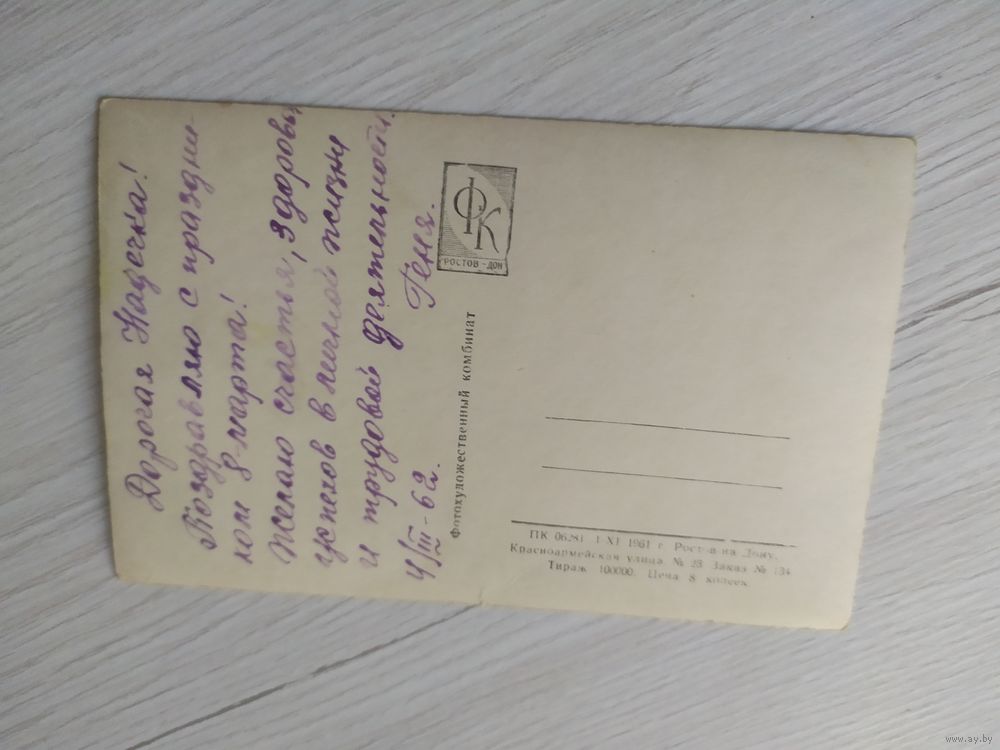 Дорогая Надечка!
Поздравляю с праздни-
ком 8-марта!
Желаю счастья, здоровья,
успехов в личной жизни
и трудовой деятельности.
4/III-62. Геня.
ФК
РОСТОВ-ДОН
Фотохудожественный комбинат
ПК 06281 1-XI 1961 г. Рост-в на Дону,
Красноармейская улица, № 23 Заказ № 134
Тираж 100000. Цена 8 копеек
www.ay.by